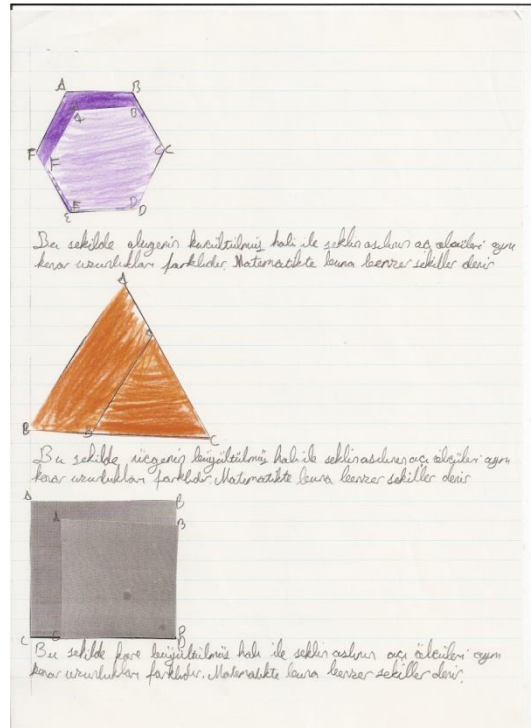 A B
A B
F F C C
E D
E D
Bu şekilde altıgenin küçültülmüş hali ile şeklin aslının açı ölçüleri aynı
kenar uzunlukları farklıdır. Matematikte buna benzer şekiller denir
A
A
B B C
Bu şekilde üçgenin büyültülmüş hali ile şeklin aslının açı ölçüleri aynı
kenar uzunlukları farklıdır. Matematikte buna benzer şekiller denir
A B
C D
Bu şekilde kare büyültülmüş hali ile şeklin aslının açı ölçüleri aynı
kenar uzunlukları farklıdır. Matematikte buna benzer şekiller denir.